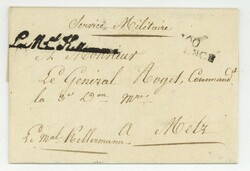 Service Militaire
Le Mal Kellermann
A Monsieur
Le General Roget, Command.t
la 3e Don mre
A Metz
Le mal Kellermann